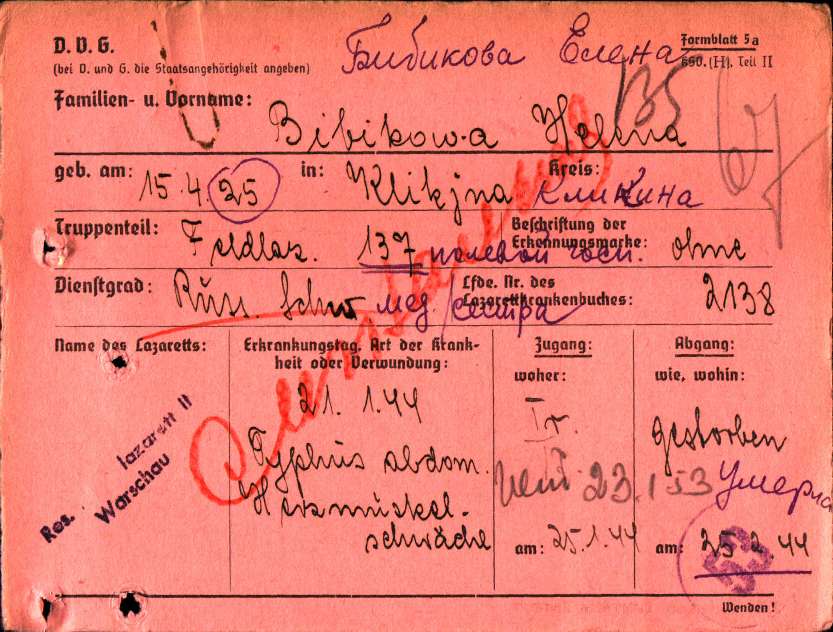 D. V. G.
Бибикова Елена
Formblatt 5a
(bei D. und G. die Staatsangehörigkeit angeben)
650. (H). Teil II
135
Familien- u. Vorname:
Bibikowa Helena
geb. am: 15.4.25 in: Klikjna Kreis: Кликина
Truppenteil: Feldlaz. 137 полевой госп. Beschriftung der Erkennungsmarke: ohne
Dienstgrad: Russ. Schw мед/сестра Lfde. Nr. des Lazarettkrankenbuches: 2138
Name des Lazaretts:
Res. lazarett II
Warschau
Erkrankungstag. Art der Krank-
heit oder Verwundung:
21. 1.44
Typhus abdom.
Herzmuskel-
schwäche
Zugang:
woher:
Tr.
23.1.53
am: 25.1.44
Abgang:
wie, wohin:
gestorben
Умерла
am: 25 2 44
Wenden!